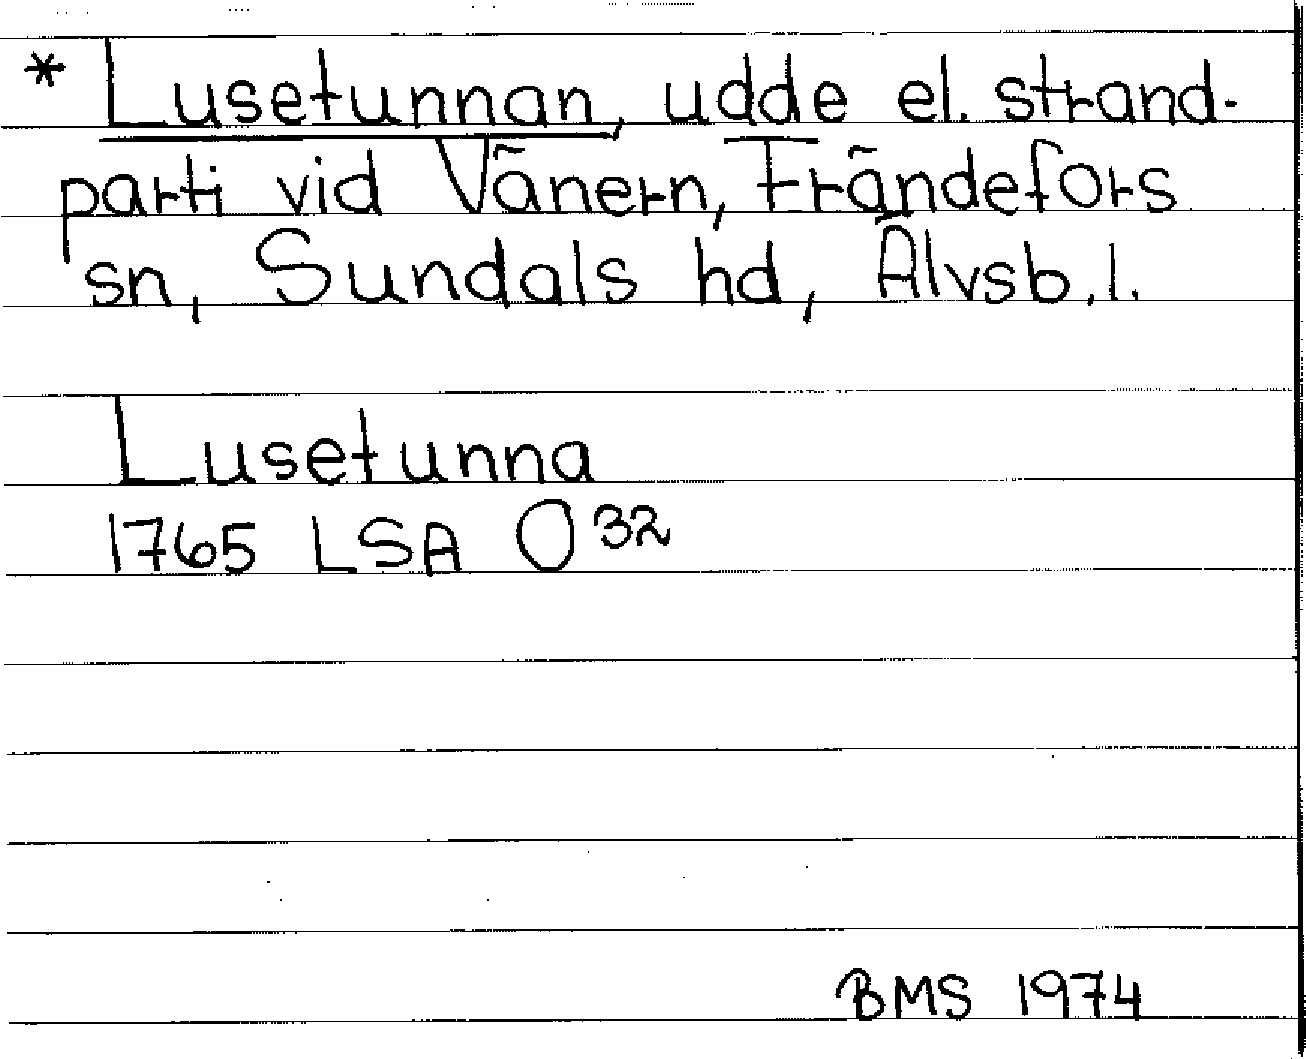 * Lusetunnan, udde el. strand-
parti vid Vänern, Frändefors
sn, Sundals hd, Älvsb. l.
Lusetunna
1765 LSA O 32
BMS 1974